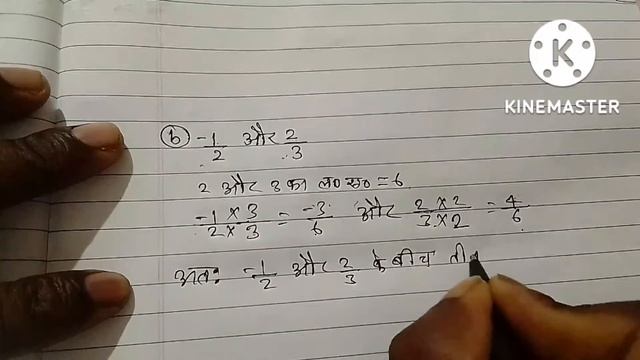 KINEMASTER
(b) -1/2 और 2/3
2 और 3 का ल० स० = 6
-1×3/2×3 = -3/6 और 2×2/3×2 = 4/6
अतः -1/2 और 2/3 के बीच ती